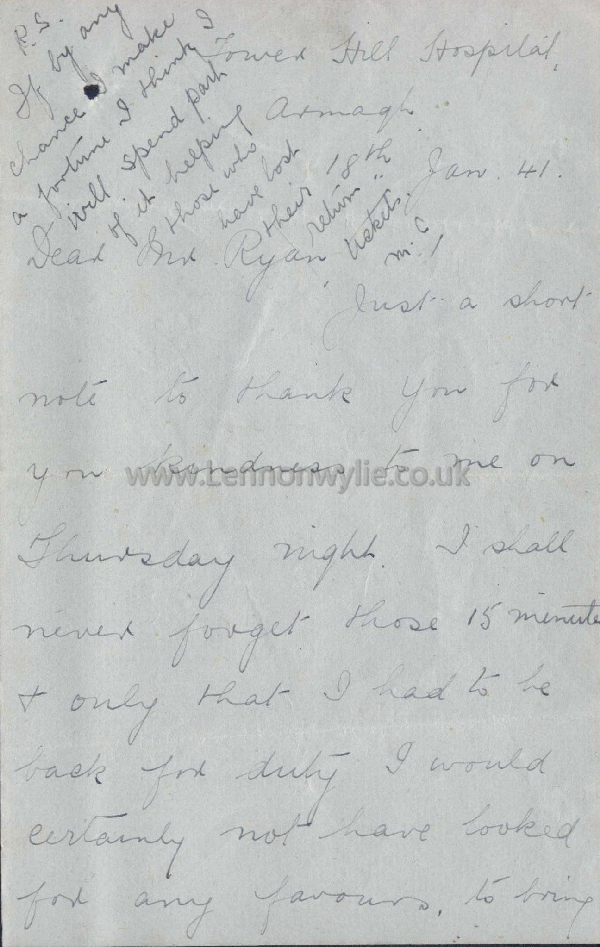 Tower Hill Hospital,
Armagh.
18th Jan. 41.
Dear Mr. Ryan,
Just a short
note to thank you for
you kindness to me on
Thursday night. I shall
never forget those 15 minutes
& only that I had to be
back for duty I would
certainly not have looked
for any favours. to bring
P.S.
If by any
chance I make
a fortune I think I
will spend part
of it helping
those who
have lost
their
"return"
tickets.
M. C!
www.Lennonwylie.co.uk